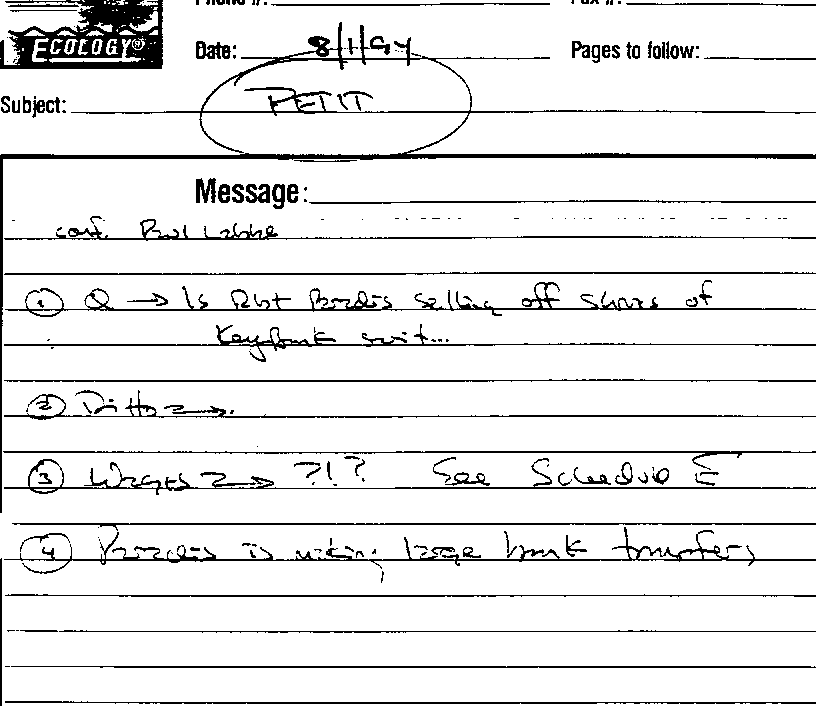 ECOLOGY®
Date: 8/1/94
Pages to follow:
Subject: PETIT
Message:
conf. Paul
① Q → Is Rbt selling off shares of
Keybank suit...
② Ditto →.
③ Wages → ?!? See Schedule E
④ is making large bank transfers